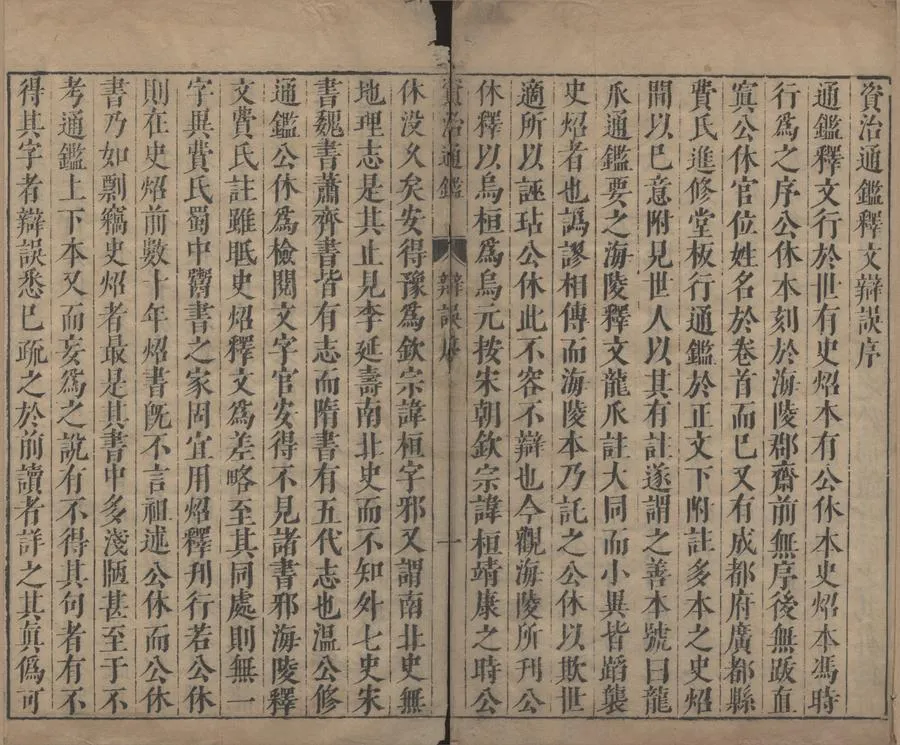 資治通鑑釋文辯誤序
通鑑釋文行於世有史炤本有公休本史炤本馮時
行爲之序公休本刻於海陵郡齋前無序後無跋直
寘公休官位姓名於卷首而已又有成都府廣都縣
費氏進修堂板行通鑑於正文下附註多本之史炤
間以已意附見世人以其有註遂謂之善本號曰龍
爪通鑑要之海陵釋文龍爪註大同而小異皆蹈襲
史炤者也譌謬相傳而海陵本乃託之公休以欺世
適所以誣玷公休此不容不辯也今觀海陵所刊公
休釋以烏桓爲烏元按宋朝欽宗諱桓靖康之時公
資治通鑑 辯誤序 一
休没久矣安得豫爲欽宗諱桓字邪又謂南北史無
地理志是其止見李延壽南北史而不知外七史宋
書魏書蕭齊書皆有志而隋書有五代志也溫公修
通鑑公休爲檢閱文字官安得不見諸書邪海陵釋
文費氏註雖眂史炤釋文爲差略至其同處則無一
字異費氏蜀中鬻書之家固宜用炤釋刊行若公休
則在史炤前數十年炤書旣不言祖述公休而公休
書乃如剽竊史炤者最是其書中多淺陋甚至于不
考通鑑上下本文而妄爲之說有不得其句者有不
得其字者辯誤悉已疏之於前讀者詳之其眞僞可